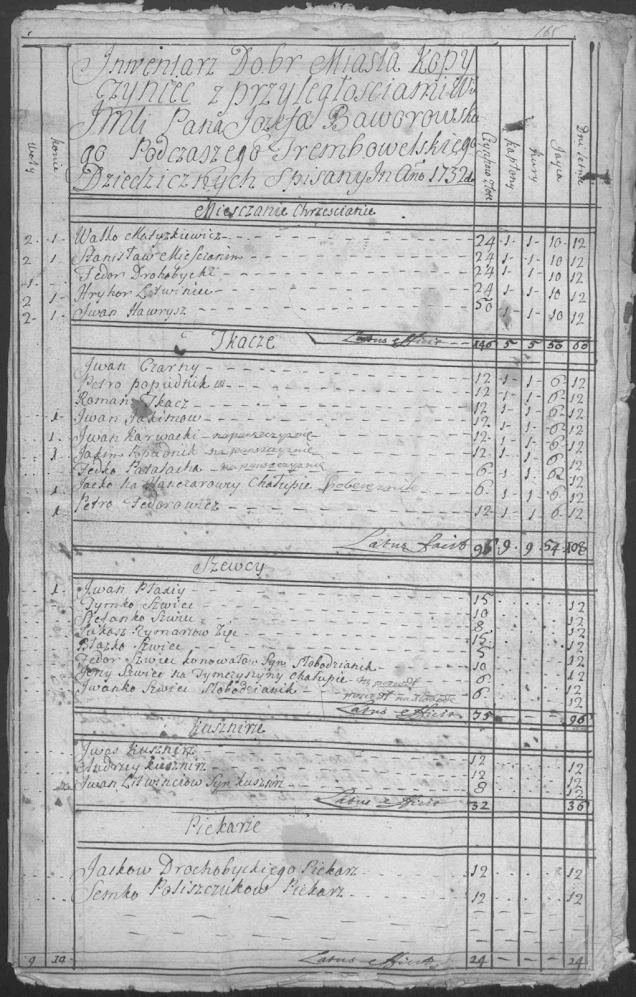 165
Inwentarz Dobr Miasta Kopy
czyniec z przyległosciami W
JMci Pana Jozefa Baworowska
go Podczaszego Trembowelskiego
Dziedzicznych Spisany In Ano 1732
woły konie Czynsz Złote kapłony kury Jayca Dni letnie
Miesczanie Chrzescianie
2 1 Walko Matyszkiewicz 24 1 1 10 12
2 1 Stanisław Miesczanin 24 1 1 10 12
Fedor Drohobycki 24 1 1 10 12
2 1 Hryhor Litwiniec 24 1 1 10 12
2 1 Jwan Hawrysz 50 1 1 10 12
Tkacze Latus efficit 146 5 5 50 60
Jwan Czarny 12 1 1 6 12
Petro popudnik 12 1 1 6 12
Roman Tkacz 12 1 1 6 12
1 Jwan Jakimow 12 1 1 6 12
1 Jwan Karwacki na panszczyznie 12 1 1 6 12
1 Jakim na panszczyznie 12 1 1 6 12
Fedko Patalacha na panszczyznie 6 1 1 6 12
1 Jacko na Hanczarowey Chałupie 6 1 1 6 12
1 Petro Fedorowicz 12 1 1 6 12
Latus facit 96 9 9 54 108
Szewcy
1 Jwan Ptasiy 15 12
Tymko Szwiec 10 12
Stefanko Szwiec 8 12
Łukasz Rymarzow Zięć 15 12
Błazko Szwiec 5 12
Fedor Szwiec konowałow Syn Słobodzianik 10 12
Jerzy Szwiec na Tymczyszyny Chałupie 6 12
Jwanko Szwiec Słobodzianik 6 12
Latus efficit 75 96
Kusznirze
Jwas Kusznirz 12 12
Andrzey Kusznirz 12 12
Jwan Litwinciow Syn Kusznirz 8 12
Latus efficit 32 36
Piekarze
Jaskow Drochobyckiego Piekarz 12 12
Semko Poliszczukow Piekarz 12 12
9 10 Latus efficit 24 24